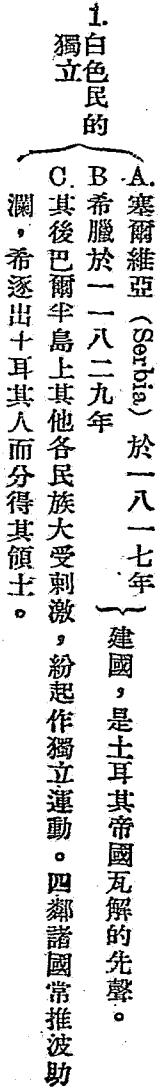 1.白色民的
獨立
A.塞爾維亞（Serbia）於一八一七年
B希臘於一一八二九年
建國，是土耳其帝國瓦解的先聲。
C.其後巴爾半島上其他各民族大受刺激，紛起作獨立運動。四鄰諸國常推波助
瀾，希逐出土耳其人而分得其領土。